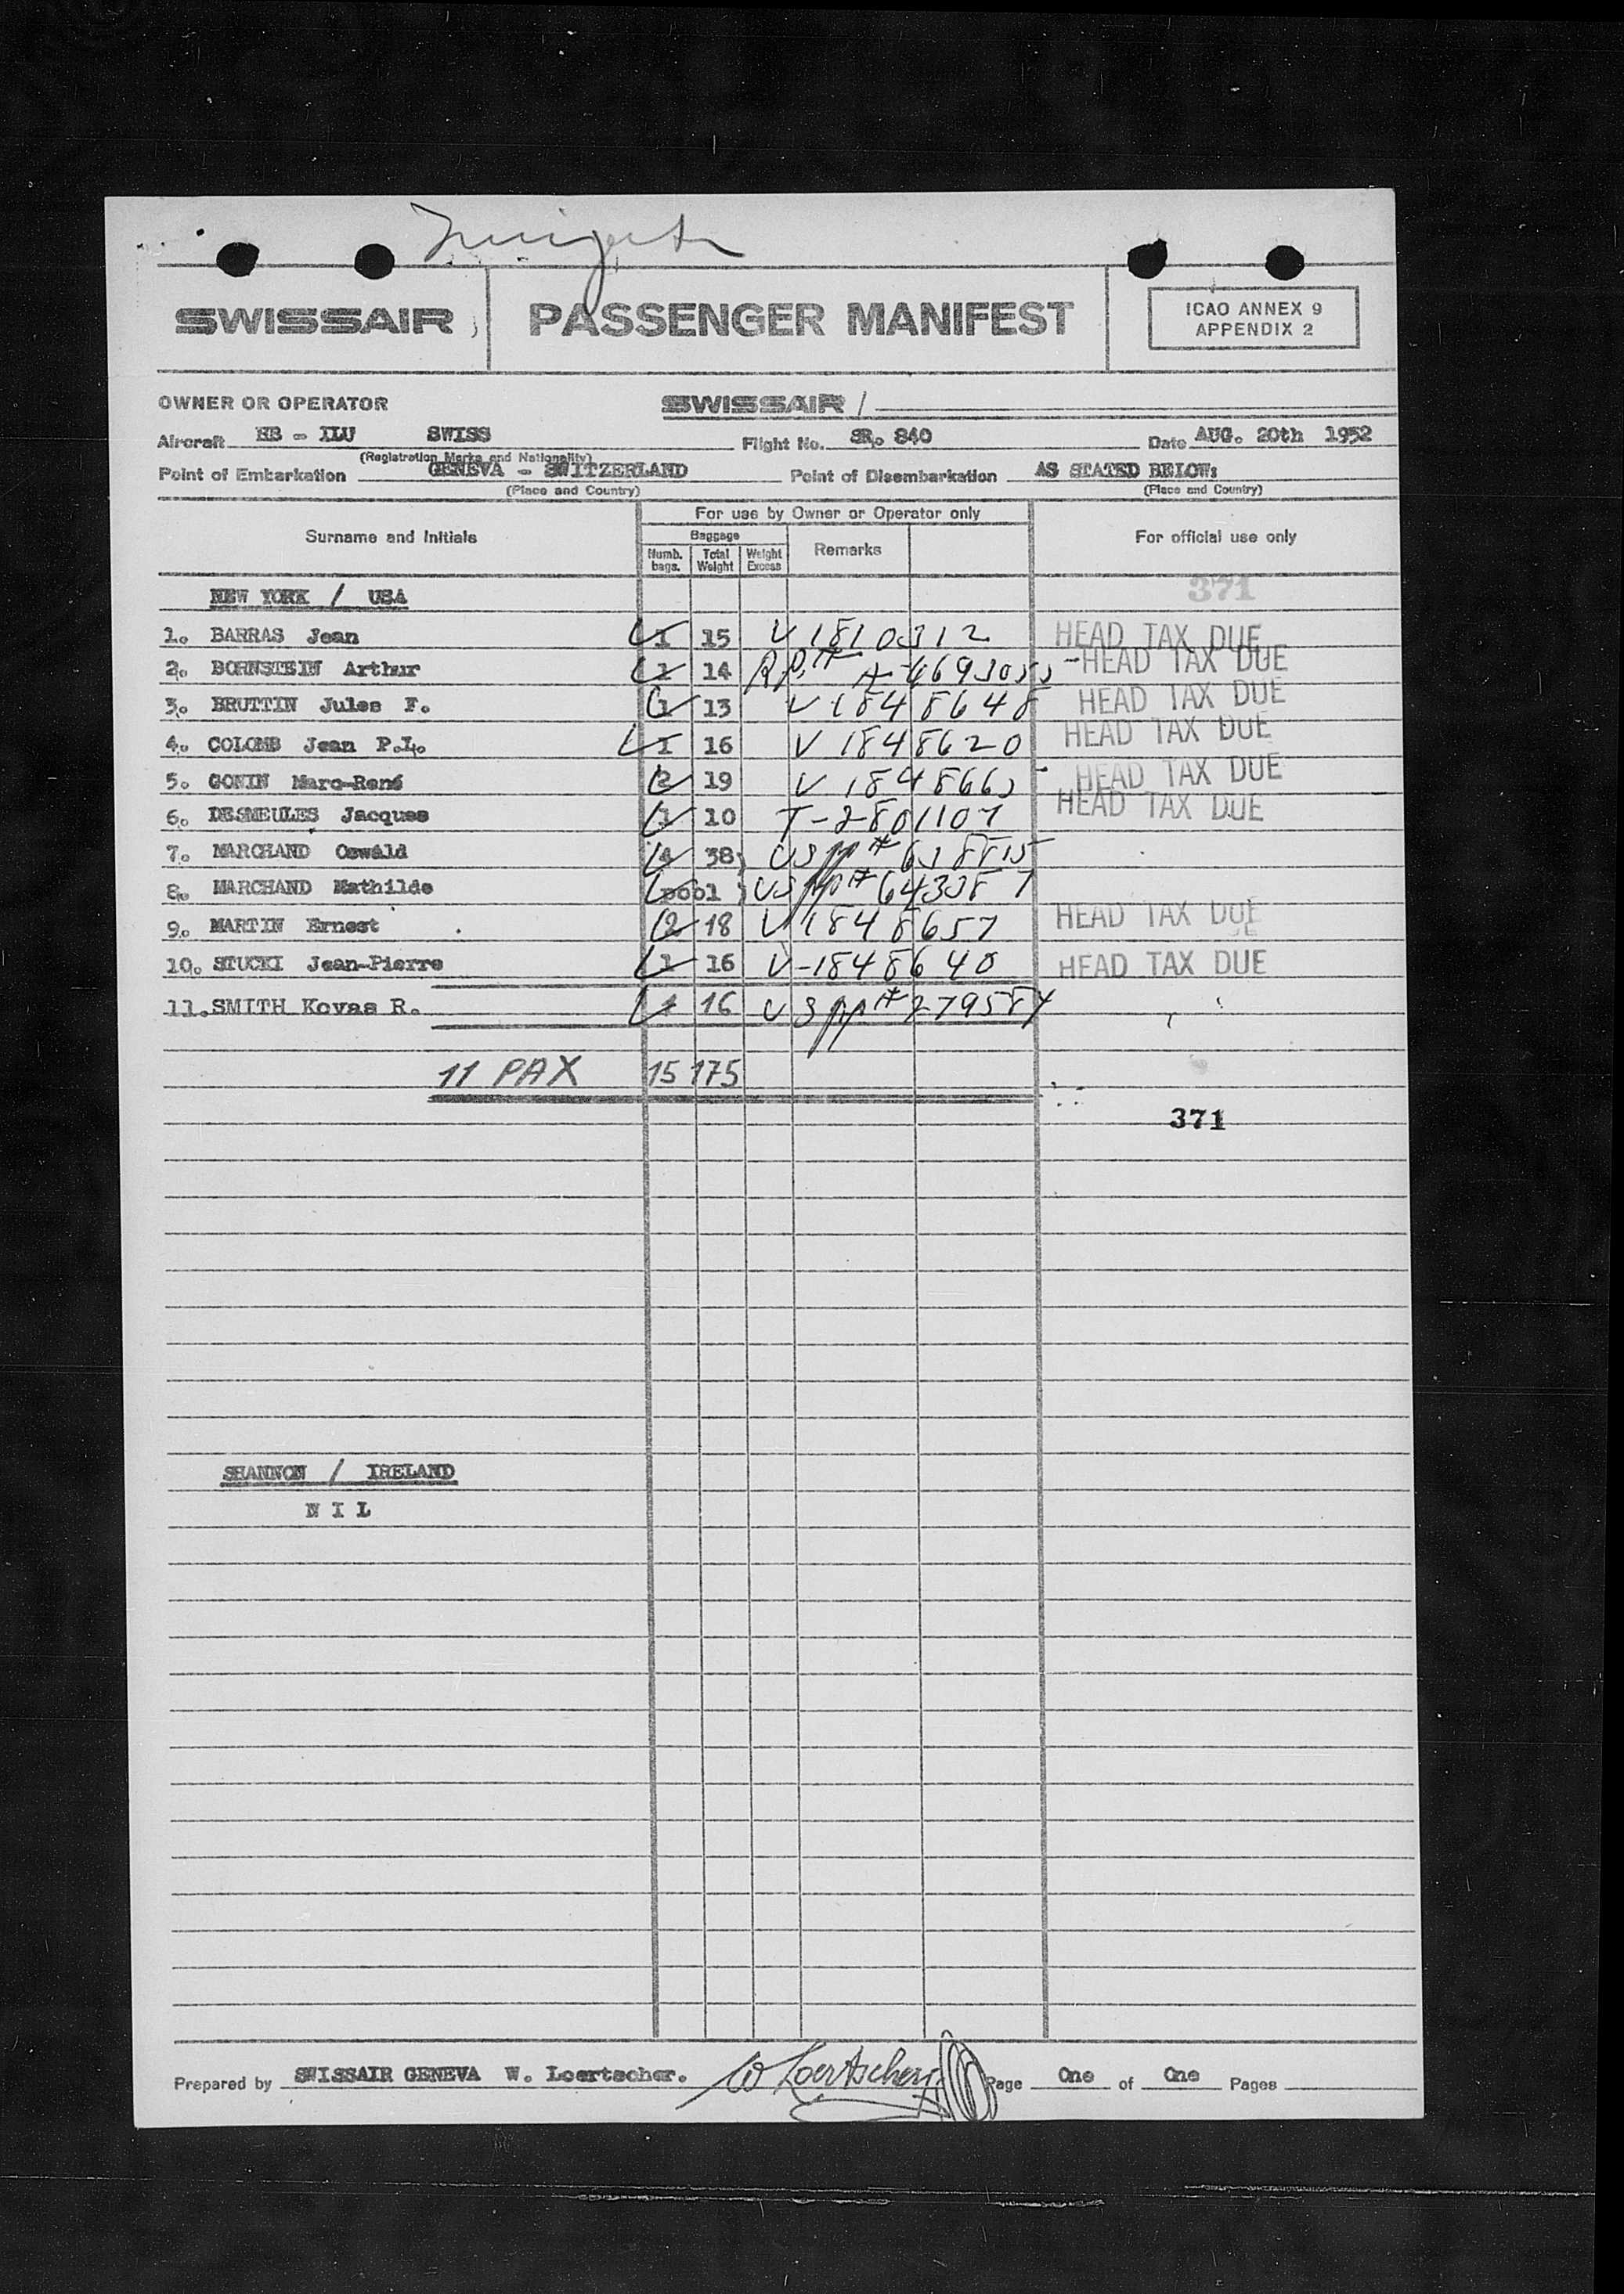 SWISSAIR PASSENGER MANIFEST ICAO ANNEX 9
APPENDIX 2
OWNER OR OPERATOR SWISSAIR /
Aircraft HB - ILU SWISS Flight No. SR. 840 Date AUG. 20th 1952
(Registration Marks and Nationality)
Point of Embarkation GENEVA - SWITZERLAND Point of Disembarkation AS STATED BELOW:
(Place and Country) (Place and Country)
For use by Owner or Operator only
Surname and Initials Baggage Remarks For official use only
Numb. bags. Total Weight Weight Excess
371
NEW YORK / USA
1. BARRAS Jean 1 15 V 1810312 HEAD TAX DUE
2. BORNSTEIN Arthur 1 14 HEAD TAX DUE
3. BRUTTIN Jules F. 1 13 V 1848648 HEAD TAX DUE
4. COLOMB Jean P.L. 1 16 V 1848620 HEAD TAX DUE
5. GONIN Marc-René 2 19 V HEAD TAX DUE
6. DESMEULES Jacques 1 10 T-2801107 HEAD TAX DUE
7. MARCHAND Oswald 4 38) US pp#
8. MARCHAND Mathilde pool ) US pp#
9. MARTIN Ernest 2 18 V 1848657 HEAD TAX DUE
10. STUCKI Jean-Pierre 1 16 V-1848640 HEAD TAX DUE
11. SMITH Kovas R. 1 16 US pp# 279584
11 PAX 15 175
371
SHANNON / IRELAND
N I L
Prepared by SWISSAIR GENEVA W. Loertscher. W Loertscher Page One of One Pages